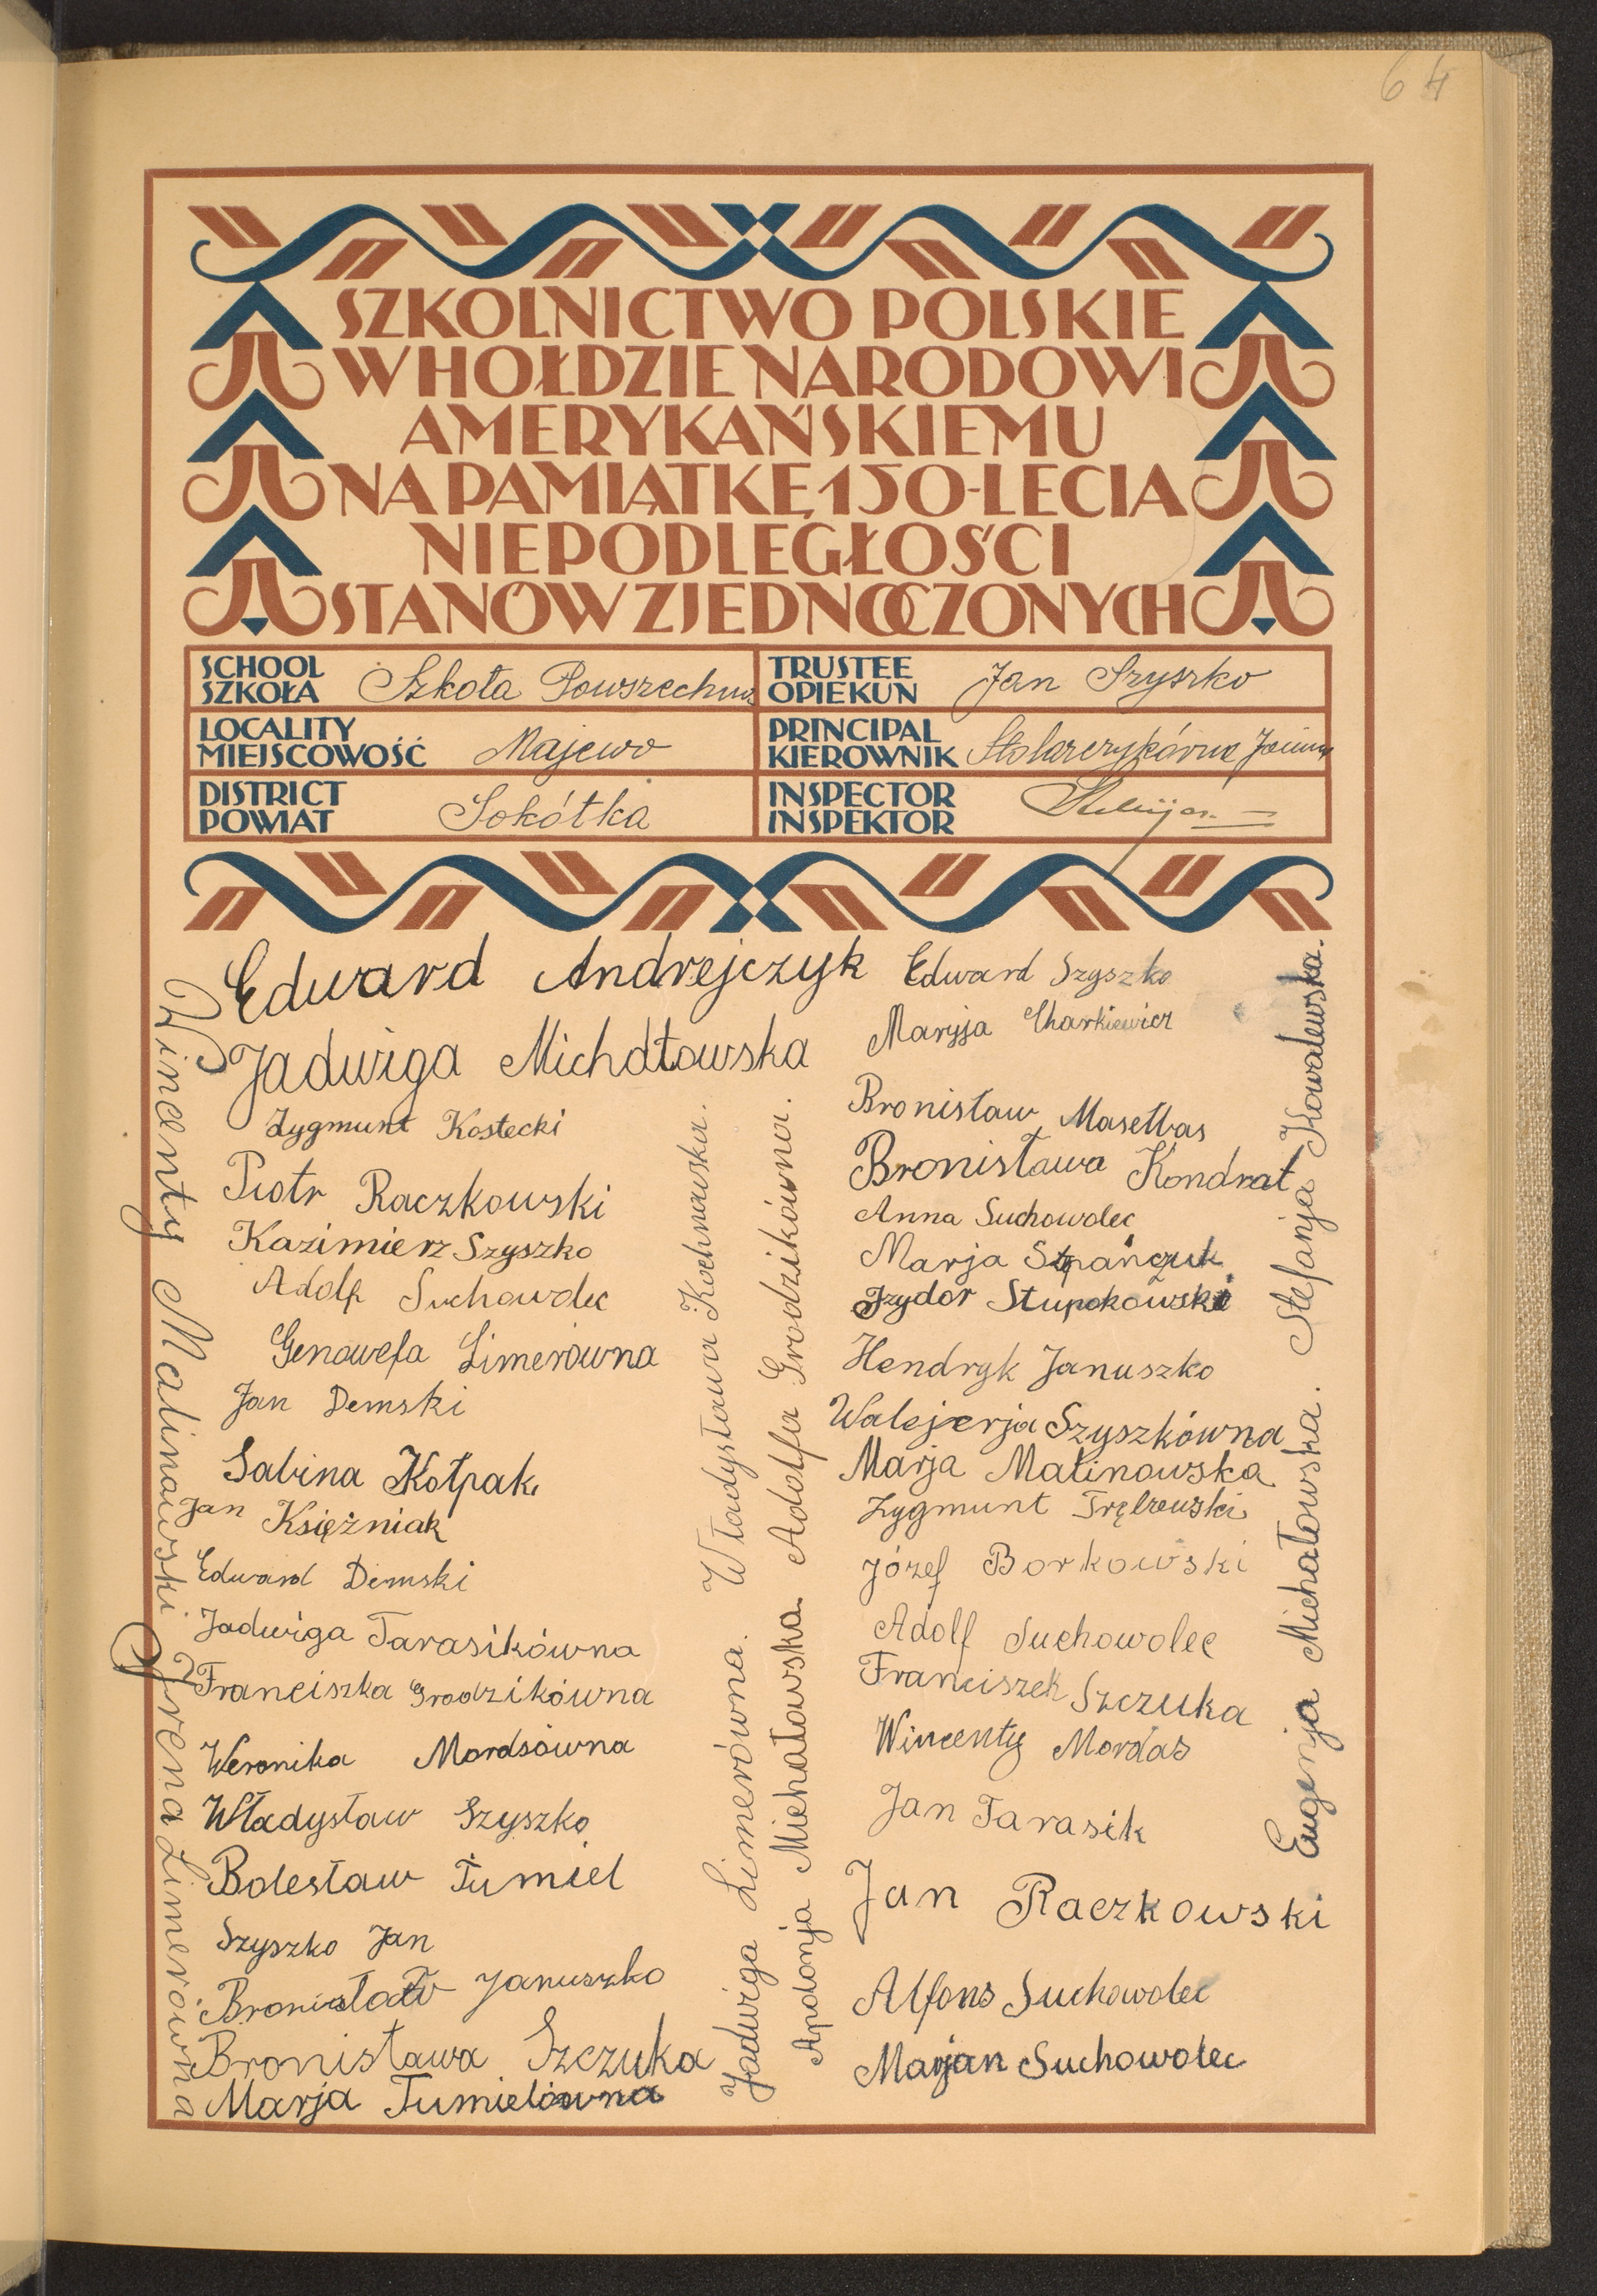 64
SZKOLNICTWO POLSKIE
W HOŁDZIE NARODOWI
AMERYKAŃSKIEMU
NA PAMIĄTKĘ 150-LECIA
NIEPODLEGŁOŚCI
STANÓW ZJEDNOCZONYCH
SCHOOL
SZKOŁA Szkoła Powszechna
TRUSTEE
OPIEKUN Jan Szyszko
LOCALITY
MIEJSCOWOŚĆ Majewo
PRINCIPAL
KIEROWNIK Stolarczykówna Janina
DISTRICT
POWIAT Sokółka
INSPECTOR
INSPEKTOR
Edward Andrejczyk
Jadwiga Michałowska
Zygmunt Kostecki
Piotr Raczkowski
Kazimierz Szyszko
Adolf Suchowolec
Genowefa Limerówna
Jan Demski
Sabina Kołpak
Jan Księżniak
Edward Demski
Jadwiga Tarasikówna
Franciszka Grodzikówna
Weronika Mordsówna
Władysław Szyszko
Bolesław Tumiel
Szyszko Jan
Bronisław Januszko
Bronisława Szczuka
Marja Tumielówna
Wincenty Malinowski
Irena Limerówna
Jadwiga Limerówna. Władysława Kochnowska.
Apolonja Michałowska. Adolfa Grodzikówna.
Edward Szyszko
Maryja Charkiewicz
Bronisław Masełbas
Bronisława Kondrat
Anna Suchowolec
Marja Stpańczuk
Izydor Stupokowski
Hendryk Januszko
Walejerja Szyszkówna
Marja Malinowska
Zygmunt
Józef Borkowski
Adolf Suchowolec
Franciszek Szczuka
Wincenty Mordas
Jan Tarasik
Jan Raczkowski
Alfons Suchowolec
Marjan Suchowolec
Eugenja Michałowska. Stefanja Kowalewska.